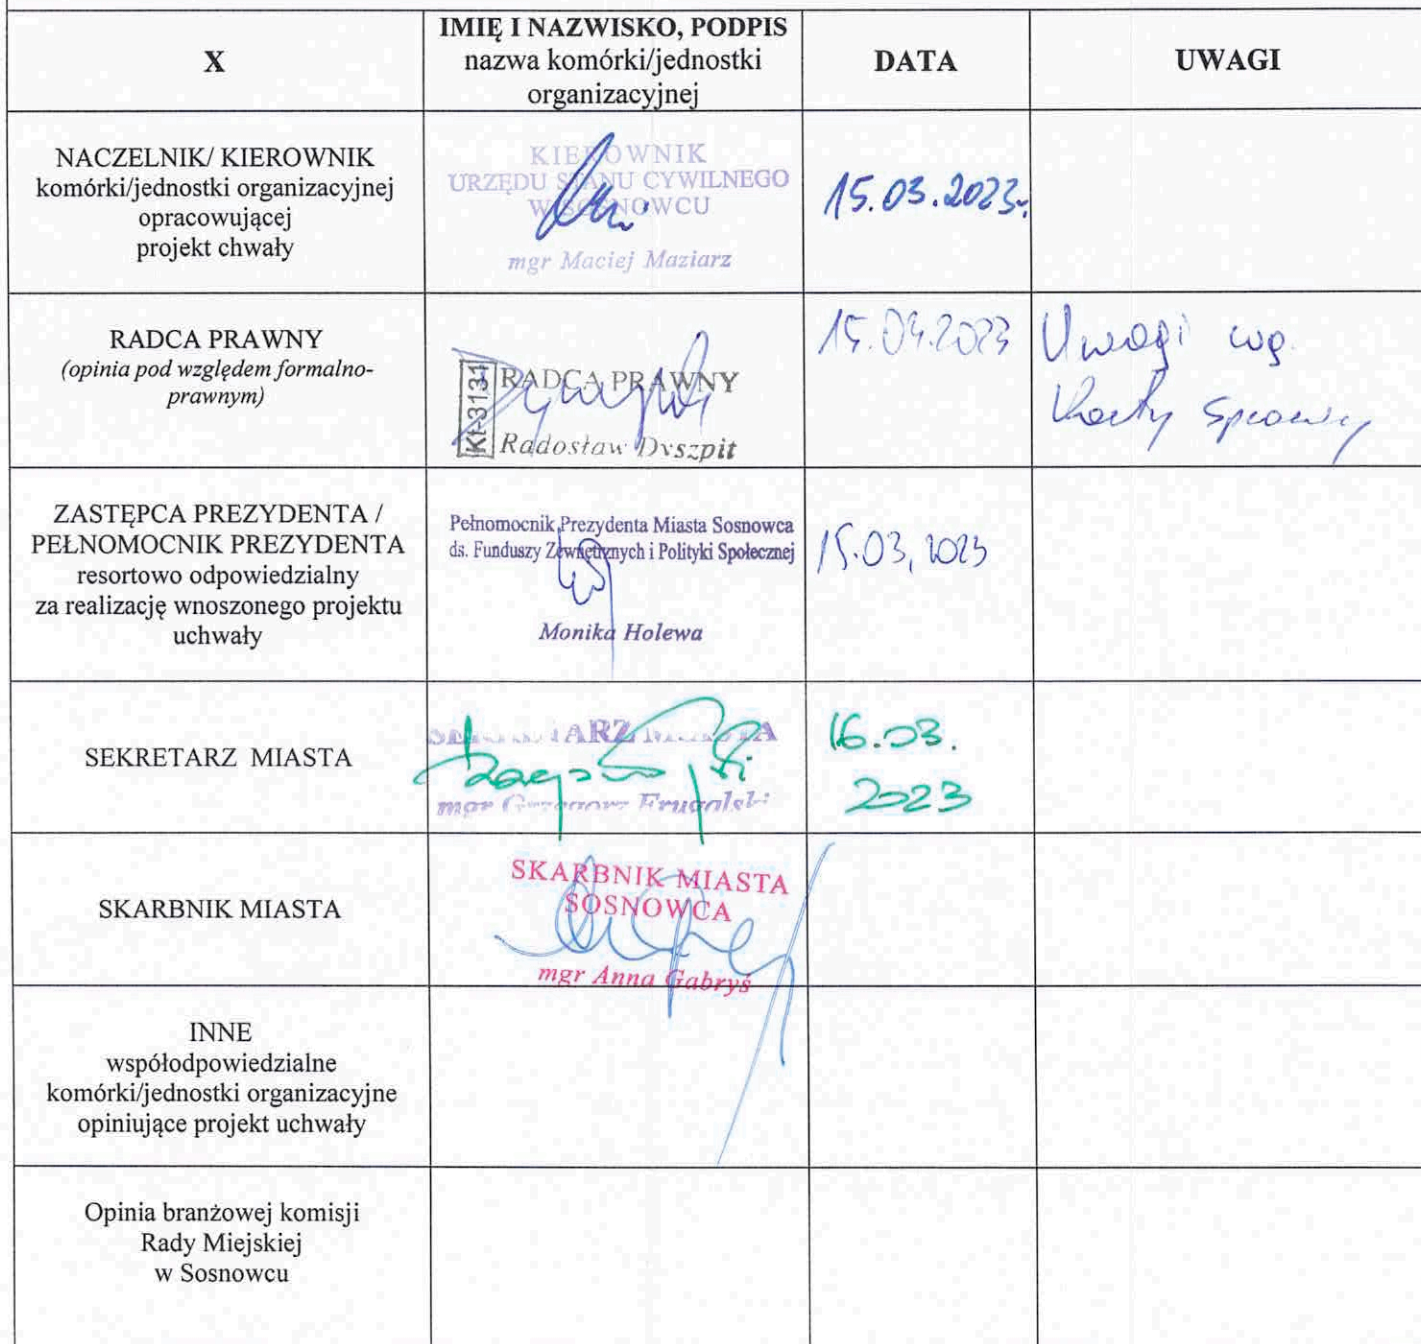 X
IMIĘ I NAZWISKO, PODPIS
nazwa komórki/jednostki
organizacyjnej
DATA
UWAGI
NACZELNIK/ KIEROWNIK
komórki/jednostki organizacyjnej
opracowującej
projekt chwały
KIEROWNIK
URZĘDU STANU CYWILNEGO
W SOSNOWCU
mgr Maciej Maziarz
15.03.2023r.
RADCA PRAWNY
(opinia pod względem formalno-
prawnym)
Kt-3131
RADCA PRAWNY
Radosław Dyszpit
15.04.2023
Uwagi wg.
Karty Sprawy
ZASTĘPCA PREZYDENTA /
PEŁNOMOCNIK PREZYDENTA
resortowo odpowiedzialny
za realizację wnoszonego projektu
uchwały
Pełnomocnik Prezydenta Miasta Sosnowca
ds. Funduszy Zewnętrznych i Polityki Społecznej
Monika Holewa
15.03.2023
SEKRETARZ MIASTA
SEKRETARZ MIASTA
mgr Grzegorz Frugalski
16.03.
2023
SKARBNIK MIASTA
SKARBNIK MIASTA
SOSNOWCA
mgr Anna Gabryś
INNE
współodpowiedzialne
komórki/jednostki organizacyjne
opiniujące projekt uchwały
Opinia branżowej komisji
Rady Miejskiej
w Sosnowcu